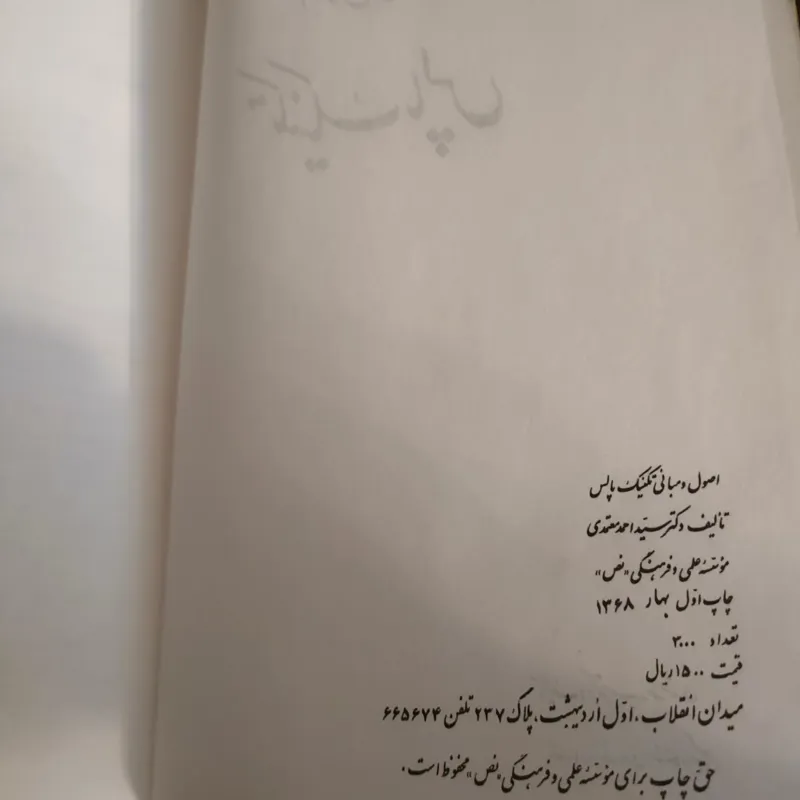 اصول و مبانی تکنیک پالس
تألیف دکتر سیّد احمد معتمدی
مؤسّسهٔ علمی و فرهنگی «نص»
چاپ اوّل بهار ۱۳۶۸
تعداد ۳۰۰۰
قیمت ۱۵۰۰ ریال
میدان انقلاب، اوّل اردیبهشت، پلاک ۲۳۷ تلفن ۶۶۵۶۷۴
حقّ چاپ برای مؤسّسهٔ علمی و فرهنگی «نص» محفوظ است.